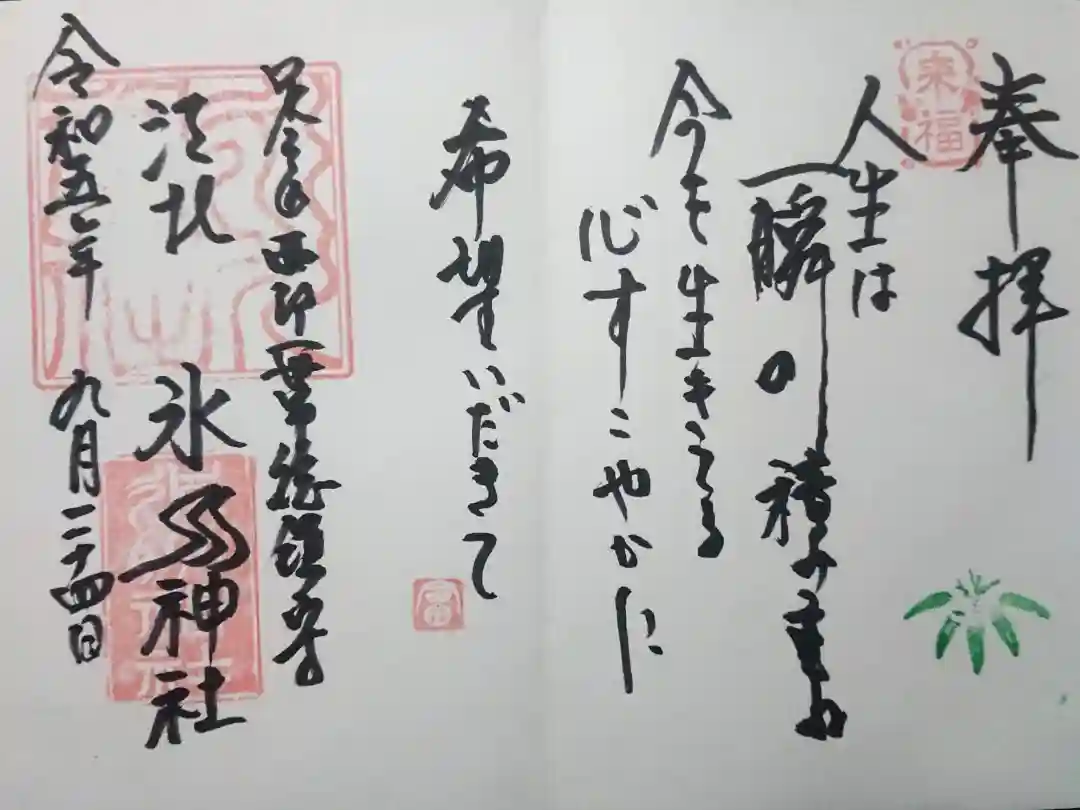 奉拝
来福
人生は
一瞬の積み重ね
今を生きる
心すこやかに
希望いだきて
総鎮守
江北 氷川神社
令和五年 九月二十四日